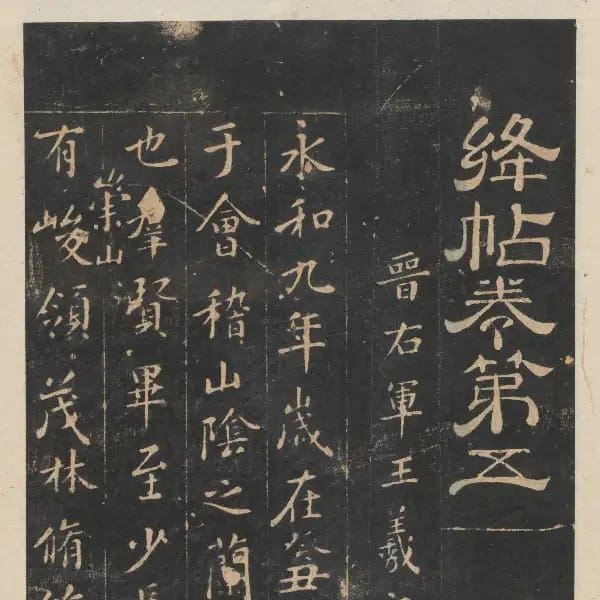 絳帖卷第五
晉右軍王羲
永和九年歲在癸丑
于會稽山陰之蘭
也羣賢畢至少長
崇山
有峻領茂林脩